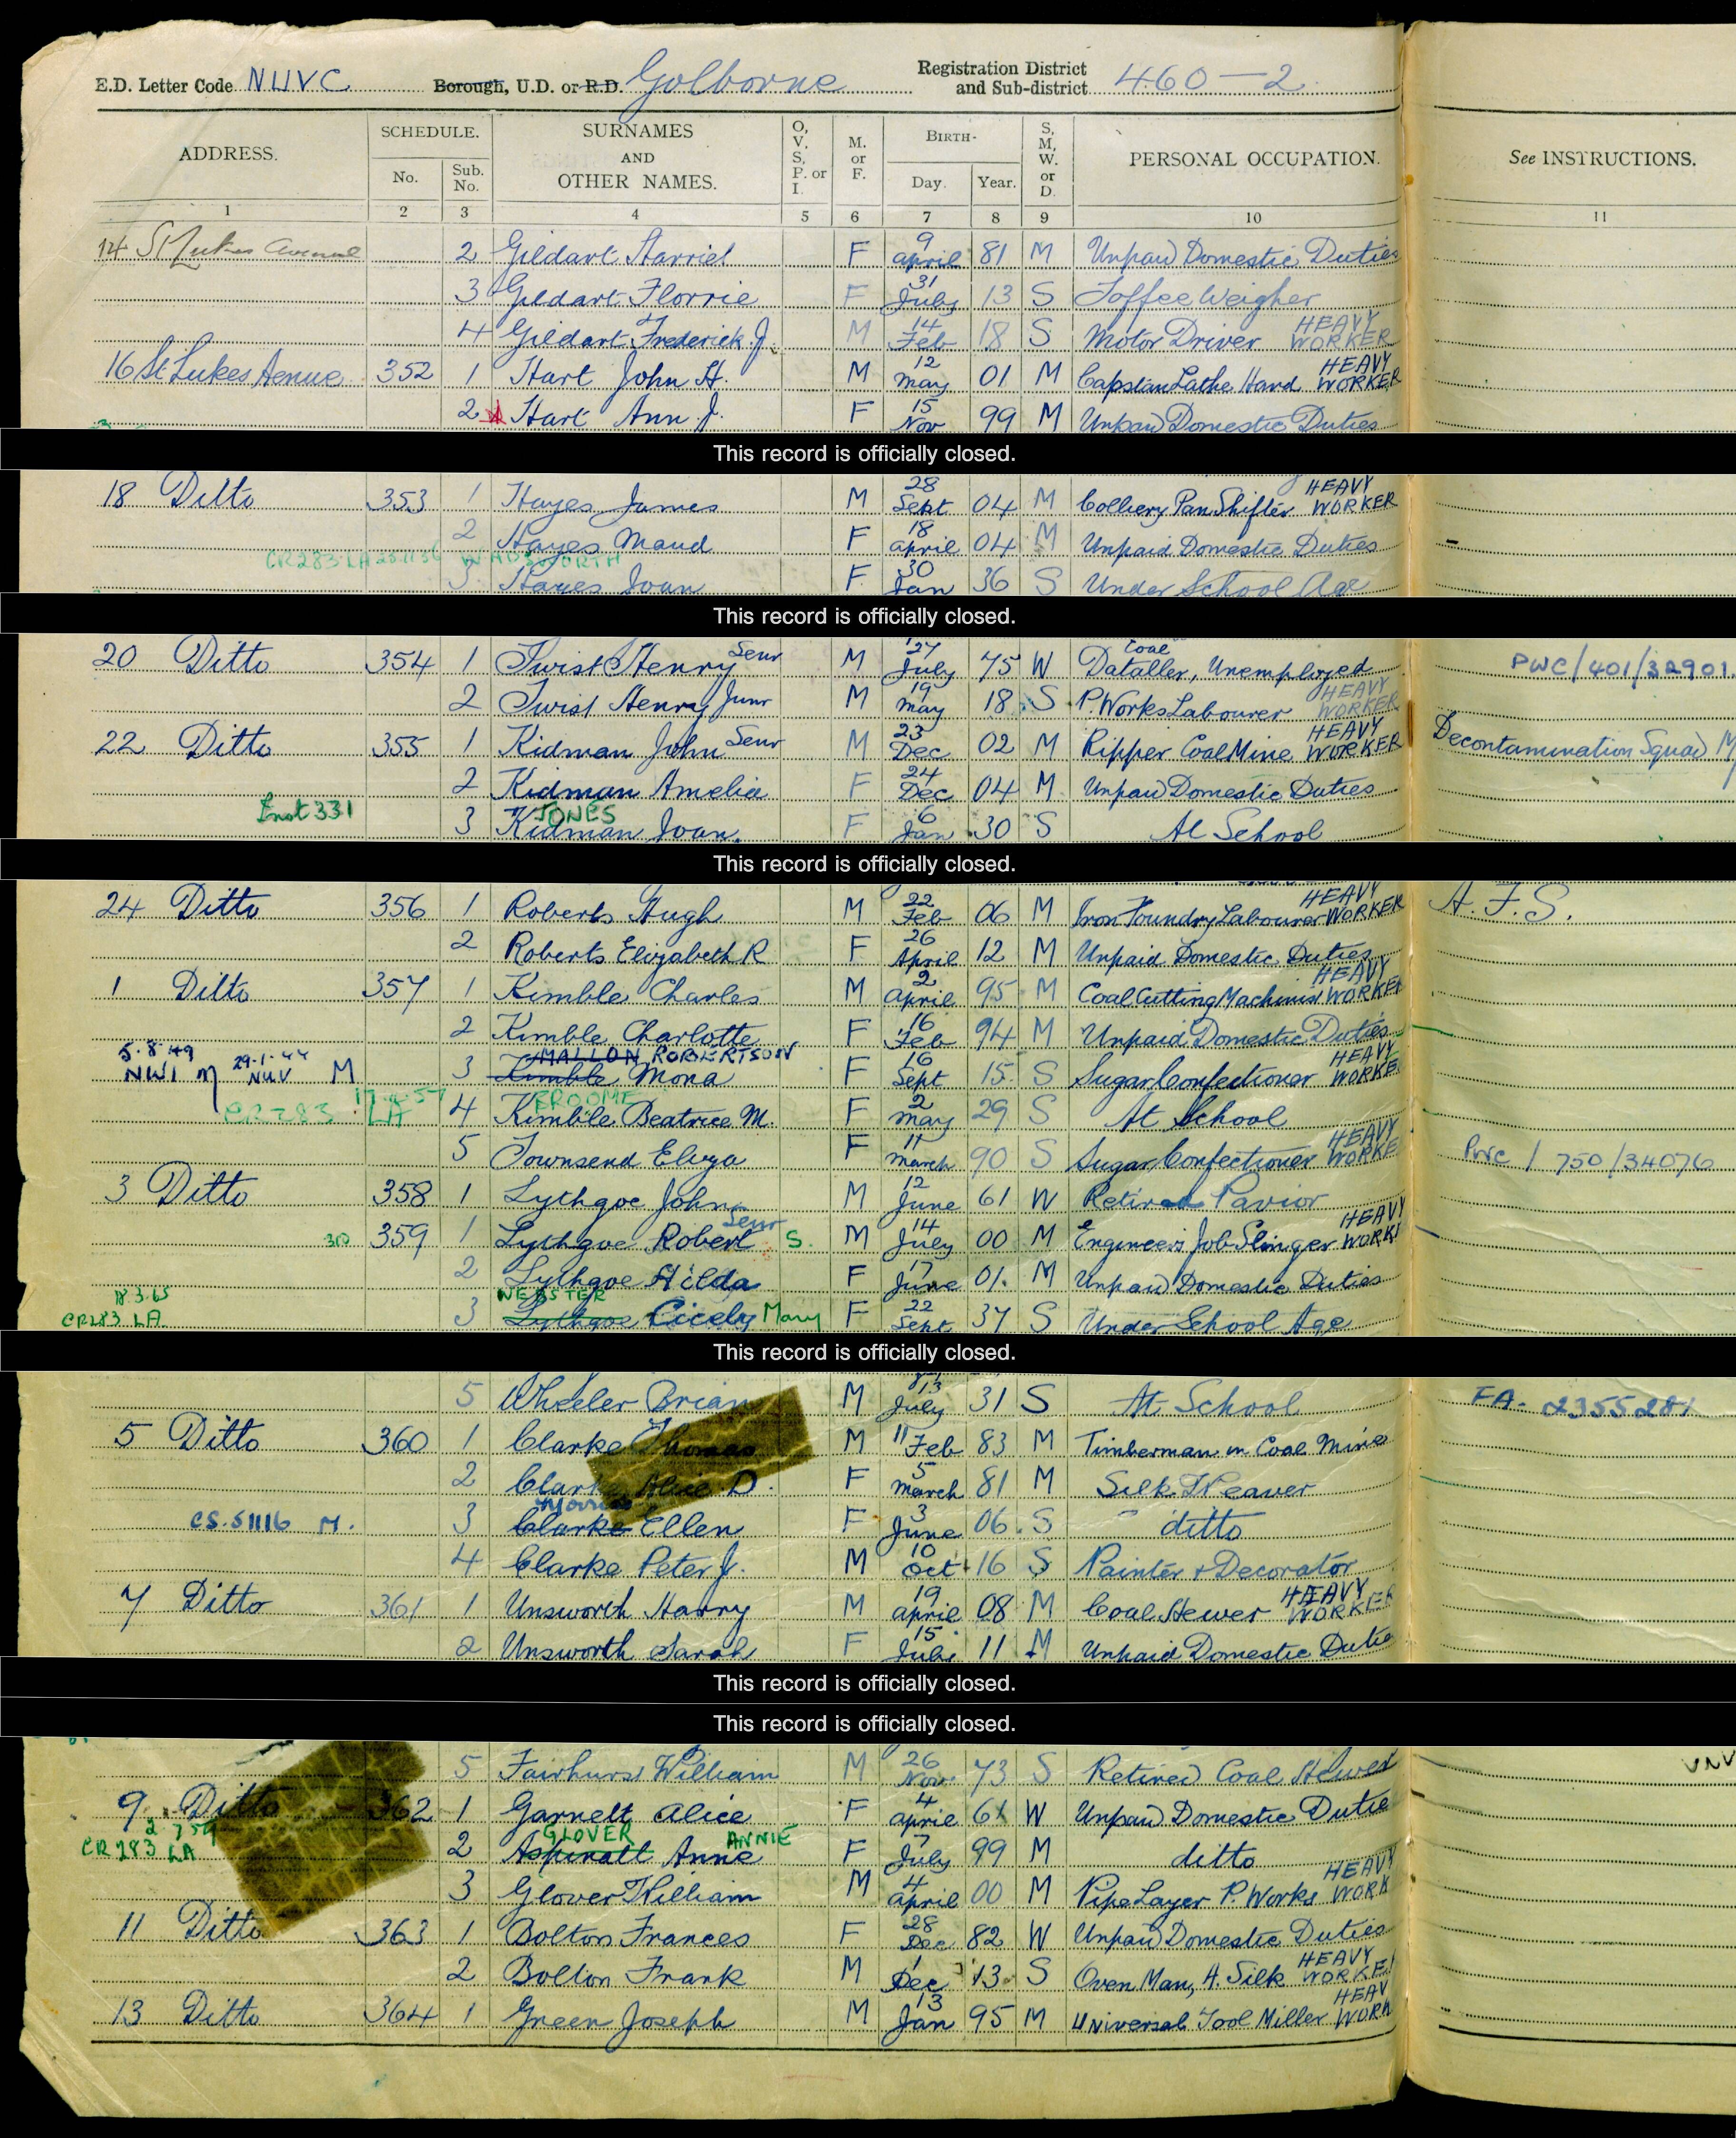 E.D. Letter Code NUVC Borough, U.D. or R.D. Golborne Registration District and Sub-district 460-2
ADDRESS. SCHEDULE. No. Sub. No. SURNAMES AND OTHER NAMES. O, V, S, P. or I. M. or F. BIRTH- Day. Year. S, M, W. or D. PERSONAL OCCUPATION. See INSTRUCTIONS.
1 2 3 4 5 6 7 8 9 10 11
14 St Lukes Avenue 2 Gildart Harriet F 9 April 81 M Unpaid Domestic Duties
3 Gildart Florrie F 31 July 13 S Toffee Weigher
4 Gildart Frederick J. M 14 Feb 18 S Motor Driver HEAVY WORKER
16 St Lukes Avenue 352 1 Hart John H. M 12 May 01 M Capstan Lathe Hand HEAVY WORKER
2 Hart Ann J. F 15 Nov 99 M Unpaid Domestic Duties
This record is officially closed.
18 Ditto 353 1 Hayes James M 28 Sept 04 M Colliery Pan Shifter HEAVY WORKER
2 Hayes Maud F 18 April 04 M Unpaid Domestic Duties
CR283 LA WADSWORTH
3 Hayes Joan F 30 Jan 36 S Under School Age
This record is officially closed.
20 Ditto 354 1 Twist Henry Senr M 27 July 75 W Coal Dataller, Unemployed PWC/401/32901
2 Twist Henry Junr M 19 May 18 S P. Works Labourer HEAVY WORKER
22 Ditto 355 1 Kidman John Senr M 23 Dec 02 M Ripper Coal Mine HEAVY WORKER Decontamination Squad
2 Kidman Amelia F 24 Dec 04 M Unpaid Domestic Duties
Ent 331 JONES
3 Kidman Joan. F 6 Jan 30 S At School
This record is officially closed.
24 Ditto 356 1 Roberts Hugh M 22 Feb 06 M Iron Foundry Labourer HEAVY WORKER A.F.S.
2 Roberts Elizabeth R F 26 April 12 M Unpaid Domestic Duties
1 Ditto 357 1 Kimble Charles M 2 April 95 M Coal Cutting Machinist HEAVY WORKER
2 Kimble Charlotte F 16 Feb 94 M Unpaid Domestic Duties
5.8.49 29.1.44 MALLON ROBERTSON
NWI M NUV M 3 Kimble Mona F 16 Sept 15 S Sugar Confectioner HEAVY WORKE
CR283 LA BROOME
4 Kimble Beatrice M. F 2 May 29 S At School
5 Townsend Eliza F 11 March 90 S Sugar Confectioner HEAVY WORKE PWC / 750/34076
3 Ditto 358 1 Lythgoe John M 12 June 61 W Retired Pavior
359 1 Lythgoe Robert Senr S. M 14 July 00 M Engineers Job Slinger HEAVY WORK
2 Lythgoe Hilda F 17 June 01 M Unpaid Domestic Duties
18.3.65 WEBSTER
CR283 LA. 3 Lythgoe Cicely Mary F 22 Sept 37 S Under School Age
This record is officially closed.
5 Wheeler Brian M 13 July 31 S At School FA.
5 Ditto 360 1 Clarke Thomas M 11 Feb 83 M Timberman in Coal Mine
2 Clarke Alice D. F 5 March 81 M Silk Weaver
CS.51116 M. Morris
3 Clarke Ellen F 3 June 06 S ditto
4 Clarke Peter J. M 10 Oct 16 S Painter & Decorator
7 Ditto 361 1 Unsworth Harry M 19 April 08 M Coal Hewer HEAVY WORKER
2 Unsworth Sarah F 15 July 11 M Unpaid Domestic Dutie
This record is officially closed.
This record is officially closed.
5 Fairhurst William M 26 Nov 73 S Retired Coal Hewer
9 Ditto 362 1 Garnett Alice F 4 April 61 W Unpaid Domestic Dutie
CR283 LA GLOVER ANNIE
2 Aspinall Anne F 7 July 99 M ditto
3 Glover William M 4 April 00 M Pipe Layer P. Works HEAVY WORK
11 Ditto 363 1 Bolton Frances F 28 Dec 82 W Unpaid Domestic Duties
2 Bolton Frank M 1 Dec 13 S Oven Man, A. Silk HEAVY WORKE
13 Ditto 364 1 Green Joseph M 13 Jan 95 M Universal Tool Miller HEAV WORK